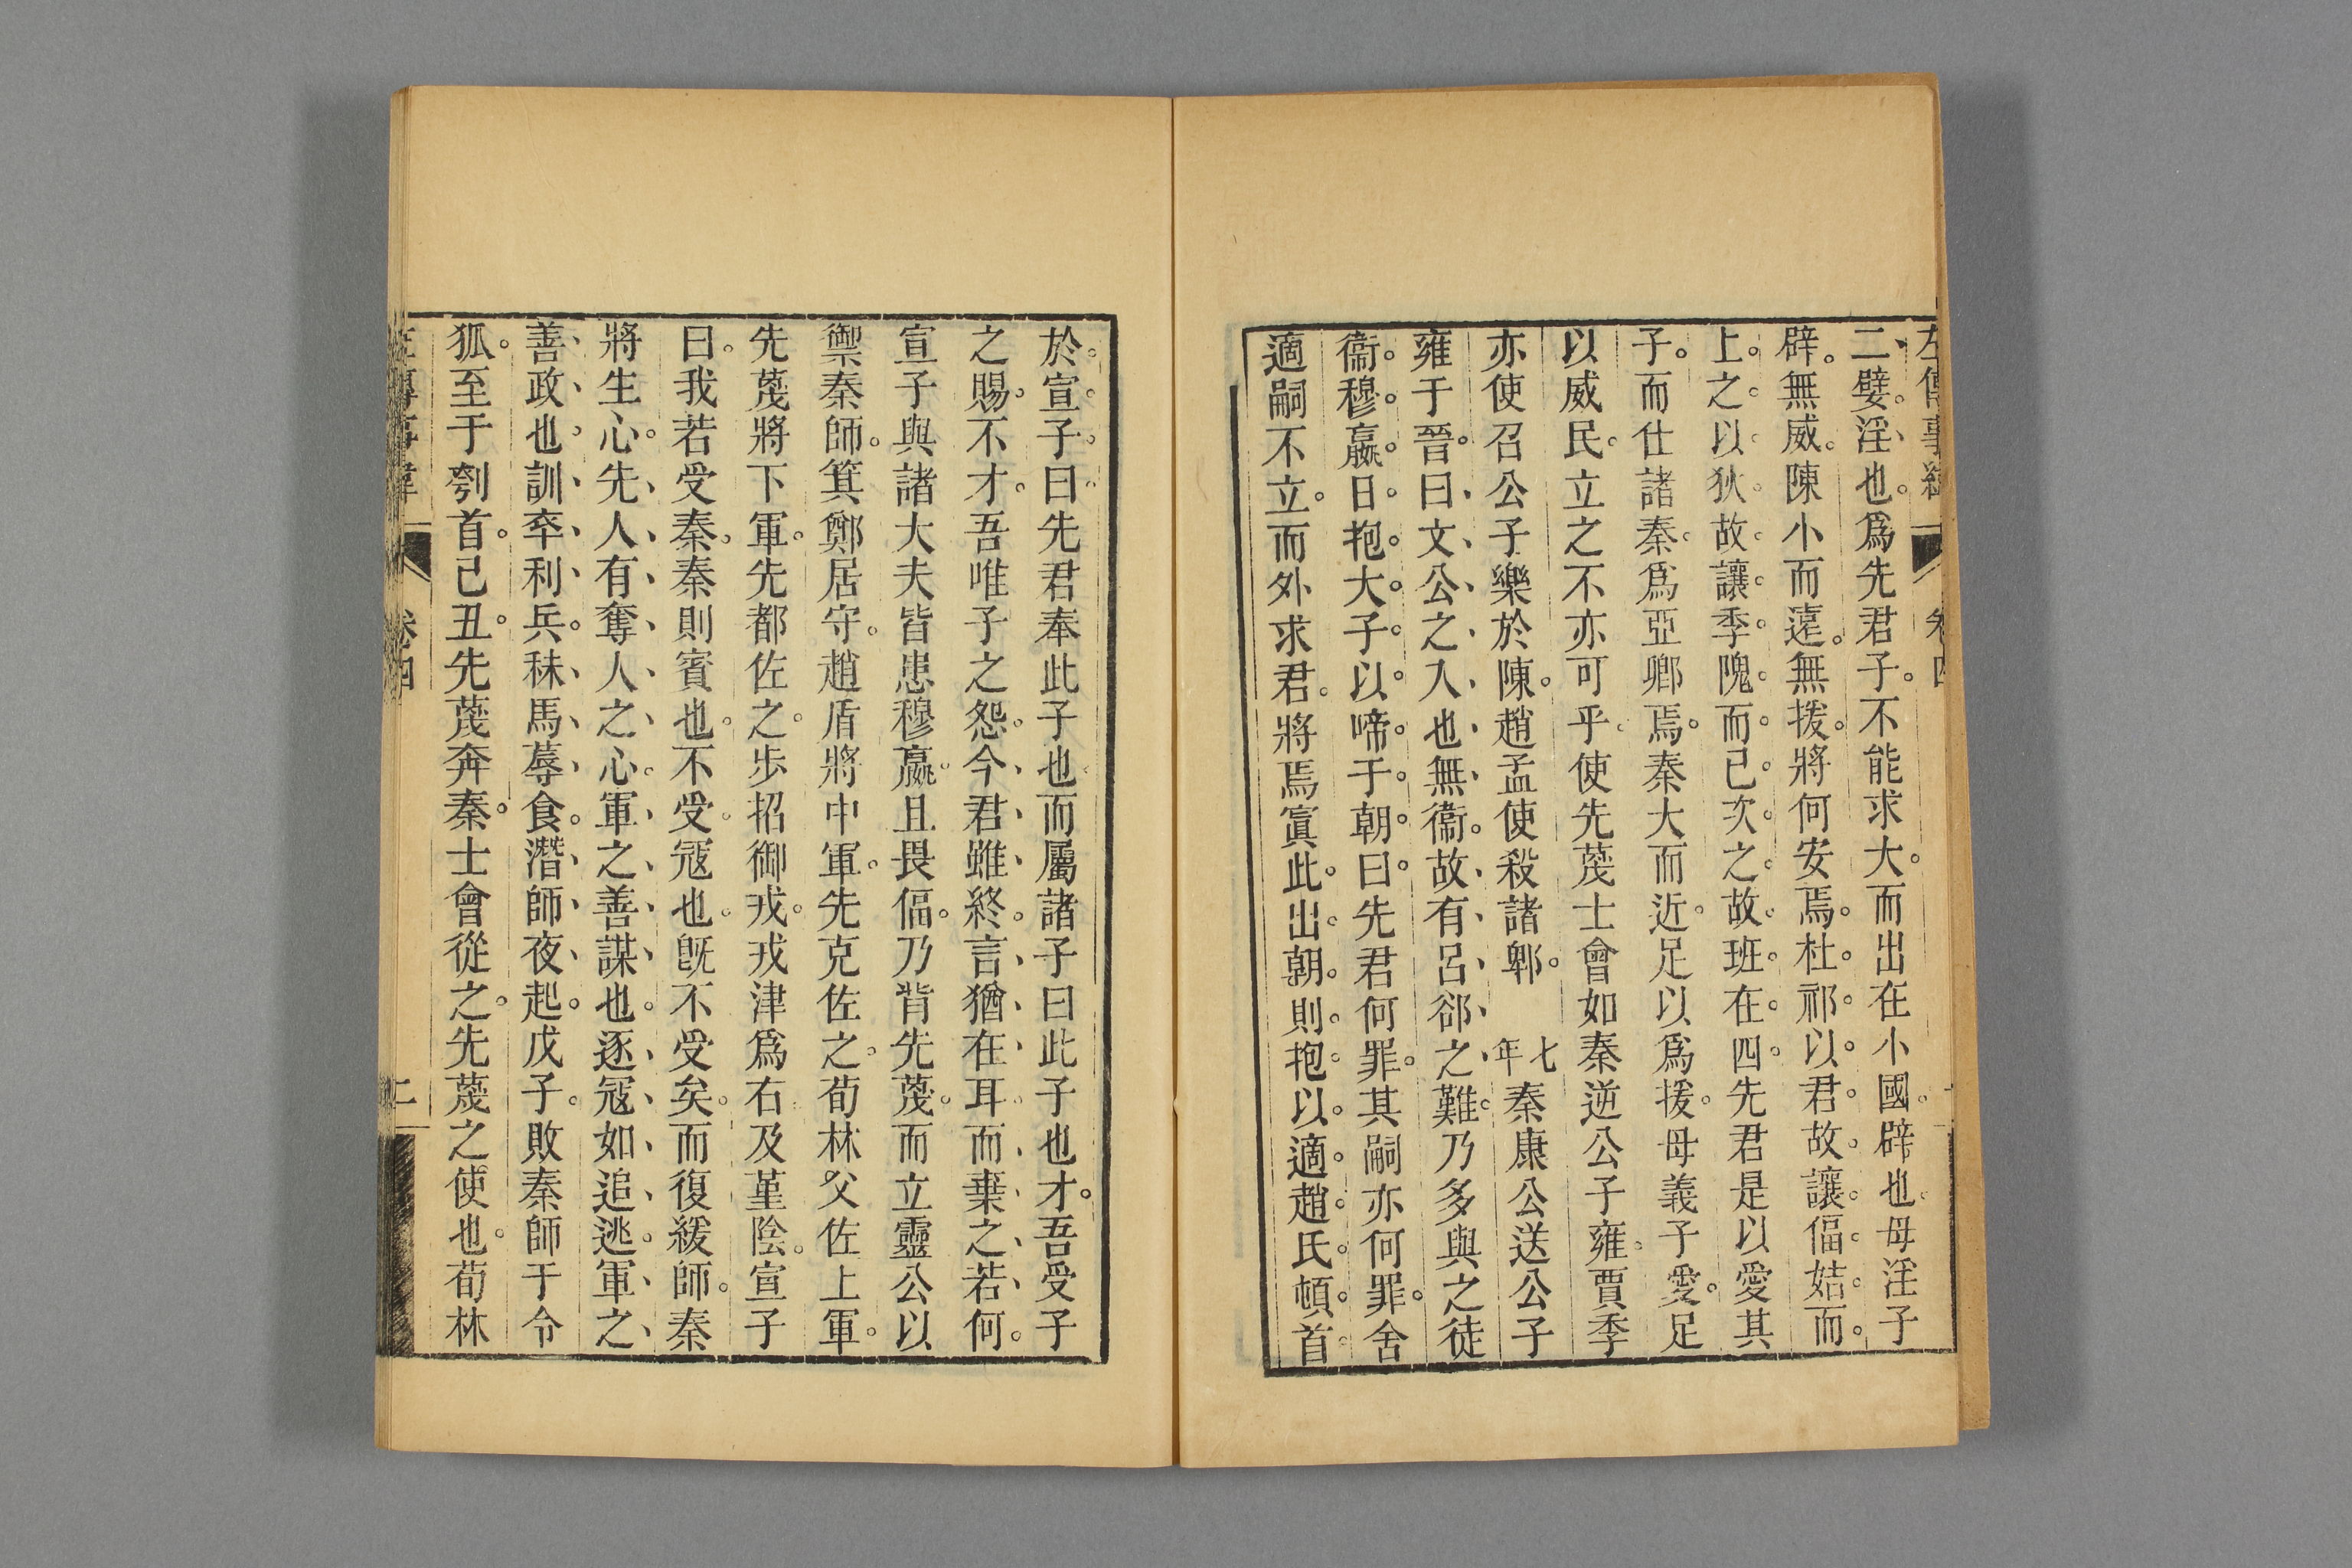 左傳事緯 卷四
二嬖淫也爲先君子不能求大而出在小國辟也母淫子
辟無威陳小而遠無援將何安焉杜祁以君故讓偪姞而
上之以狄故讓季隗而己次之故班在四先君是以愛其
子而仕諸秦爲亞卿焉秦大而近足以爲援母義子愛足
以威民立之不亦可乎使先蔑士會如秦逆公子雍賈季
亦使召公子樂於陳趙孟使殺諸郫 七年秦康公送公子
雍于晉曰文公之入也無衞故有呂郤之難乃多與之徒
衞穆嬴日抱大子以啼于朝曰先君何罪其嗣亦何罪舍
適嗣不立而外求君將焉寘此出朝則抱以適趙氏頓首
於宣子曰先君奉此子也而屬諸子曰此子也才吾受子
之賜不才吾唯子之怨今君雖終言猶在耳而棄之若何
宣子與諸大夫皆患穆嬴且畏偪乃背先蔑而立靈公以
禦秦師箕鄭居守趙盾將中軍先克佐之荀林父佐上軍
先蔑將下軍先都佐之步招御戎戎津爲右及堇陰宣子
曰我若受秦秦則賓也不受寇也旣不受矣而復緩師秦
將生心先人有奪人之心軍之善謀也逐寇如追逃軍之
善政也訓卒利兵秣馬蓐食潛師夜起戊子敗秦師于令
狐至于刳首己丑先蔑奔秦士會從之先蔑之使也荀林
左傳事緯 卷四 二